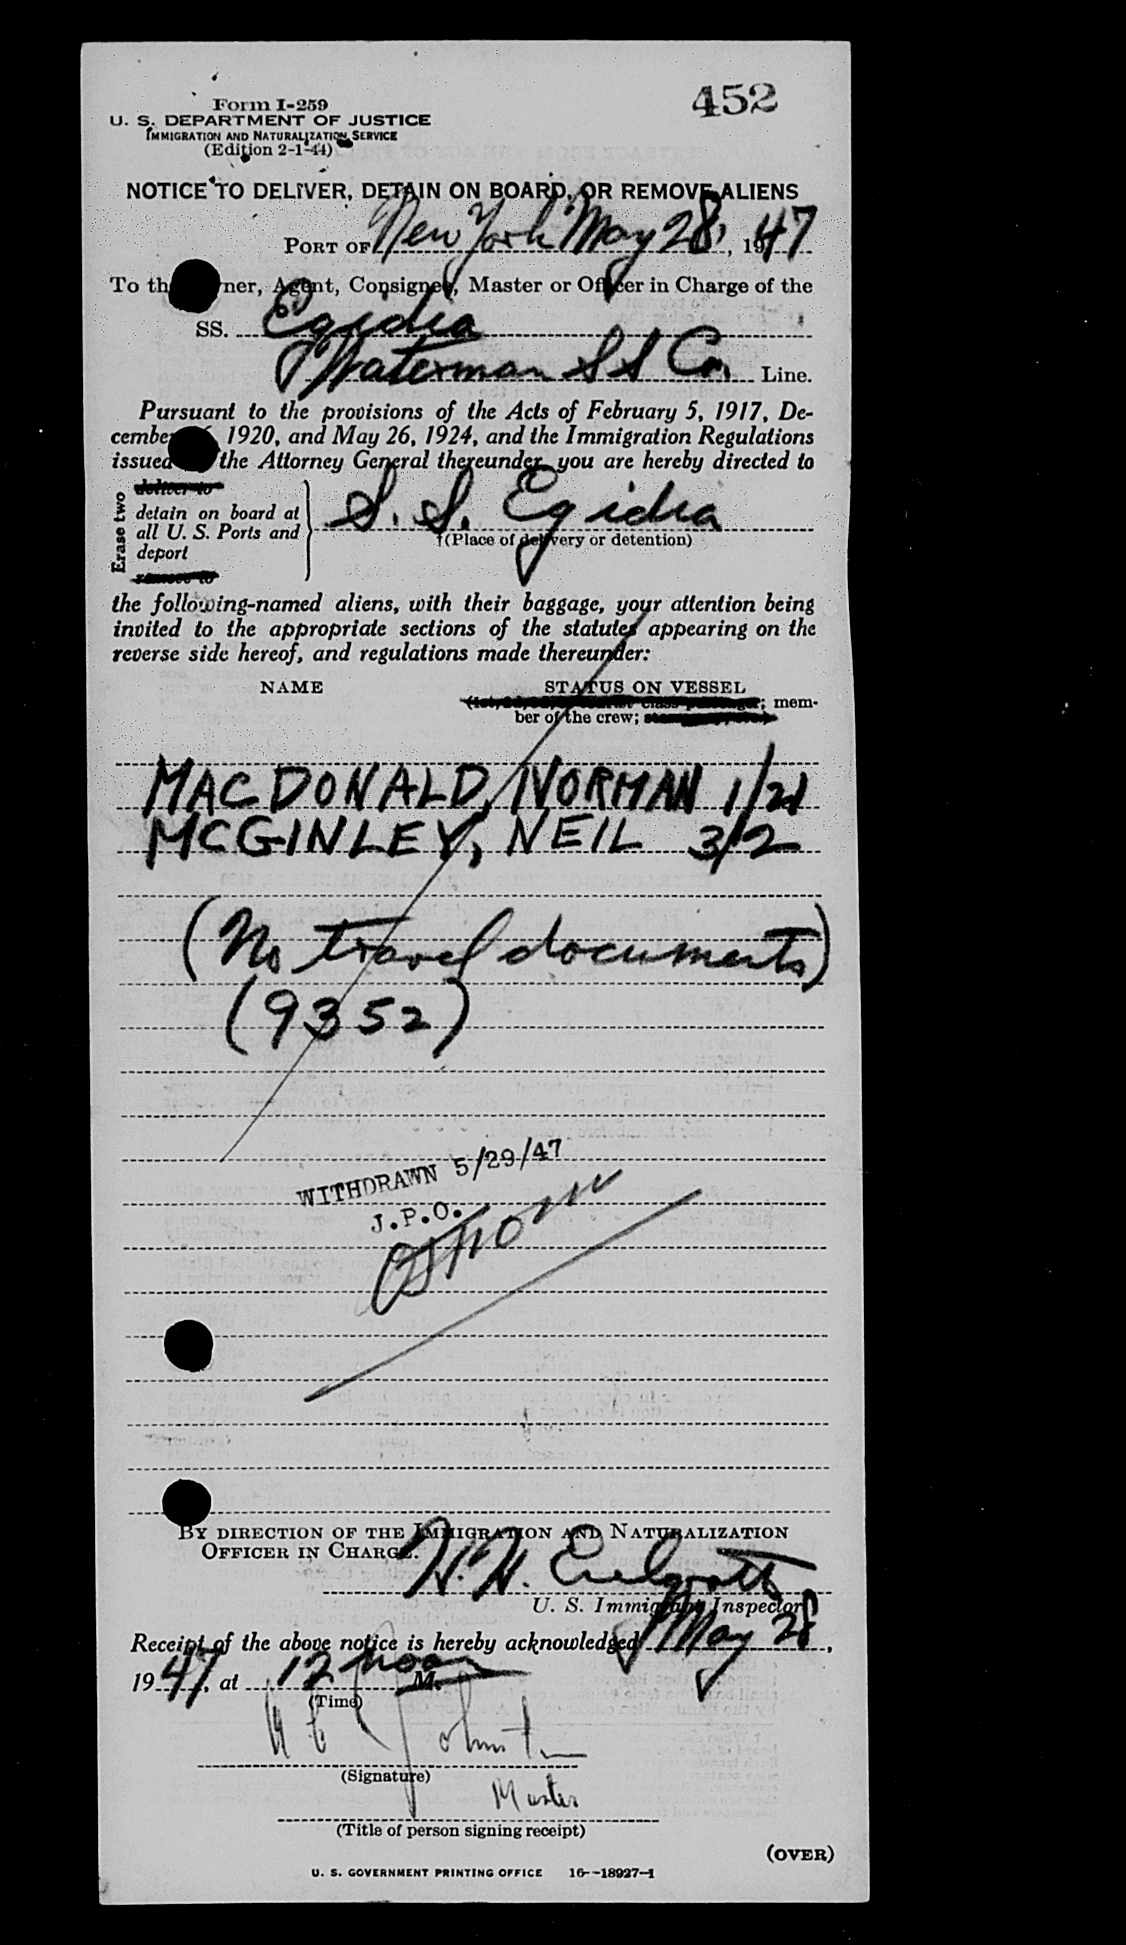 452
Form I-259
U. S. DEPARTMENT OF JUSTICE
IMMIGRATION AND NATURALIZATION SERVICE
(Edition 2-1-44)
NOTICE TO DELIVER, DETAIN ON BOARD, OR REMOVE ALIENS
PORT OF New York May 28, 1947
To th ner, Agent, Consignee, Master or Officer in Charge of the
SS. Egidia
Waterman S S Co. Line.
Pursuant to the provisions of the Acts of February 5, 1917, De-
cember 1920, and May 26, 1924, and the Immigration Regulations
issued the Attorney General thereunder, you are hereby directed to
Erase two
deliver to
detain on board at
all U. S. Ports and
deport
remove to
S. S. Egidia
†(Place of delivery or detention)
the following-named aliens, with their baggage, your attention being
invited to the appropriate sections of the statutes appearing on the
reverse side hereof, and regulations made thereunder:
NAME STATUS ON VESSEL
class passenger; mem-
ber of the crew;
MACDONALD, NORMAN 1/2d
MCGINLEY, NEIL 3/2
(No travel documents)
(9352)
WITHDRAWN 5/29/47
J.P.O.
BY DIRECTION OF THE IMMIGRATION AND NATURALIZATION
OFFICER IN CHARGE.
H. H.
U. S. Immigrant Inspector
Receipt of the above notice is hereby acknowledged May 28,
1947, at 12 noon M.
(Time)
Johnston
(Signature)
Master
(Title of person signing receipt)
(OVER)
U. S. GOVERNMENT PRINTING OFFICE 16--18927-1